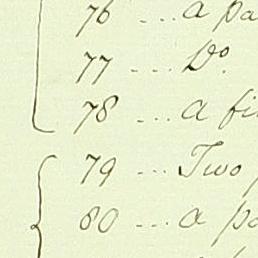 76 ... a pa
77 ... Do.
78 ... a fi
79 ... Two
80 ... a pa